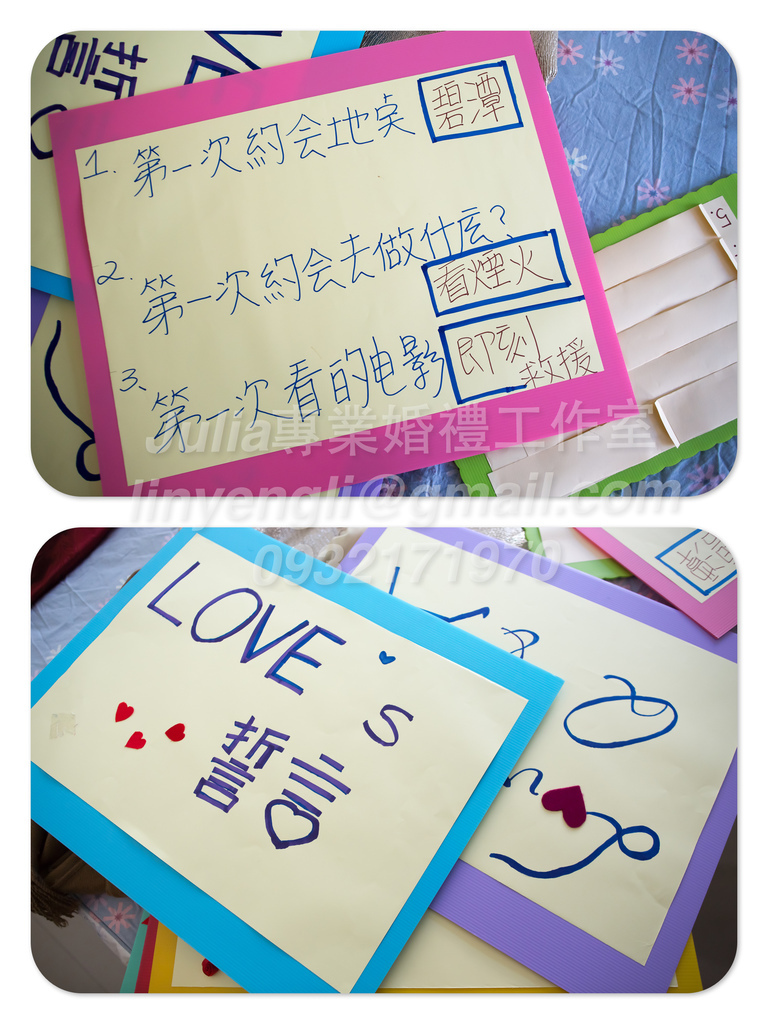 誓
1. 第一次約会地点
碧潭
2. 第一次約会去做什広?
看煙火
3. 第一次看的电影
即刻
救援
5.
Julia專業婚禮工作室
linyengli@gmail.com
0932171970
LOVE's
誓言